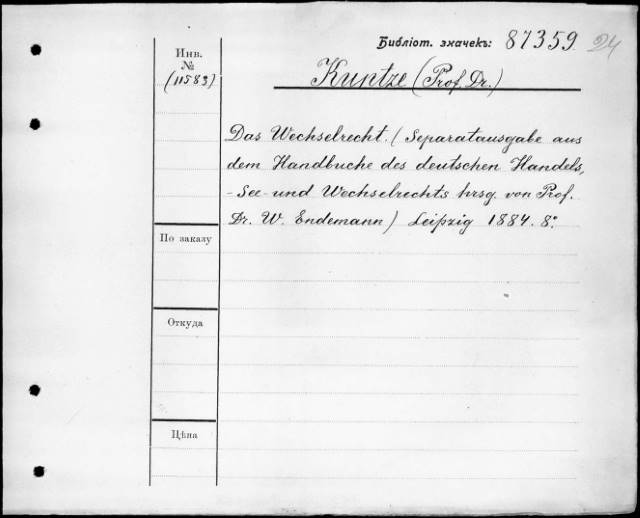 Библіот. значекъ: 87359. 24
Инв.
№
(11583)
Kuntze (Prof. Dr.)
Das Wechselrecht. (Separatausgabe aus
dem Handbuche des deutschen Handels,
-See- und Wechselrechts hrsg. von Prof.
Dr. W. Endemann) Leipzig 1884. 8°.
По заказу
Откуда
Цѣна